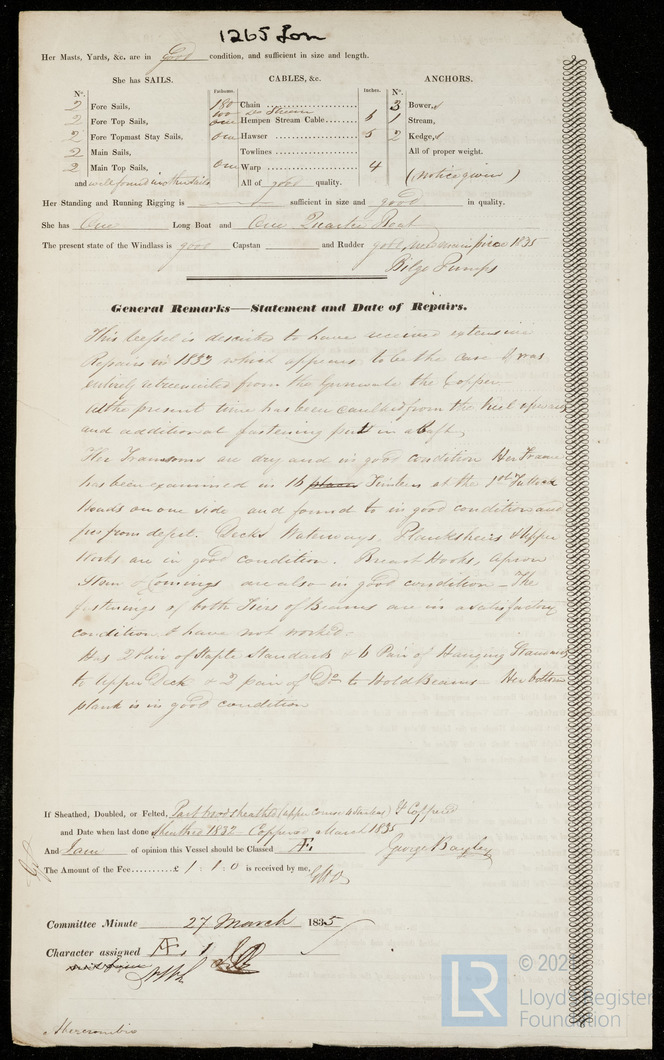 1265 Lon
Her Masts, Yards, &c. are in Good condition, and sufficient in size and length.
She has SAILS. CABLES, &c. ANCHORS.
No. Fathoms. Inches. No.
2 Fore Sails, 180 Chain 3 Bowers
2 Fore Top Sails, 100 one Hempen Stream Cable 6 1 Stream,
2 Fore Topmast Stay Sails, one Hawser 5 2 Kedges
2 Main Sails, Towlines All of proper weight.
2 Main Top Sails, one Warp 4
and well found in other sails All of good quality. (notice given)
Her Standing and Running Rigging is sufficient in size and good in quality.
She has One Long Boat and One Quarter Boat
The present state of the Windlass is good Capstan and Rudder good 1835
Bilge Pumps
General Remarks—Statement and Date of Repairs.
This Vessel is described to have received extensive
Repairs in 1832 which appears to be the case & was
entirely from the Gunwale the Copper
At the present time has been caulked from the Keel upwards
and additional fastening put in abaft
Her Transoms are dry and in good condition Her Frame
has been examined in 16 places Timbers at the 1st Futtock
Heads on one side and found to in good condition and
free from defect. Decks Waterways, Plancksheirs & Upper
Works are in good condition. Breast Hooks, Apron
Stem & Comings are also in good condition – The
fastenings of both Tiers of Beams are in a satisfactory
condition & have not worked.
Has 2 Pair of Staple Standards & 6 Pair of Hanging Standards
to Upper Deck & 2 pair of Do to Hold Beams – Her bottom
plank is in good condition
If Sheathed, Doubled, or Felted, Part wood sheathed & Coppered
and Date when last done Sheathed 1832 – Coppered March 1835
And I am of opinion this Vessel should be Classed Æ1 George Bayley
The Amount of the Fee £ 1 : 1 : 0 is received by me,
Committee Minute 27 March 1835
Character assigned Æ 1
Abercrombie
LR
© 202
Lloyd's Register
Foundation